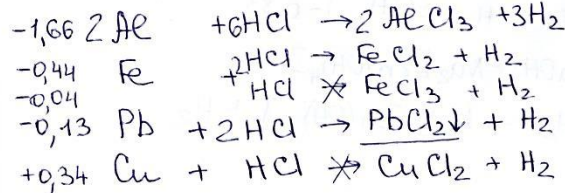 -1,66 2 Al + 6HCl → 2 AlCl₃ + 3H₂
-0,44 Fe + 2HCl → FeCl₂ + H₂
-0,04 HCl ↛ FeCl₃ + H₂
-0,13 Pb + 2HCl → PbCl₂↓ + H₂
+0,34 Cu + HCl ↛ CuCl₂ + H₂